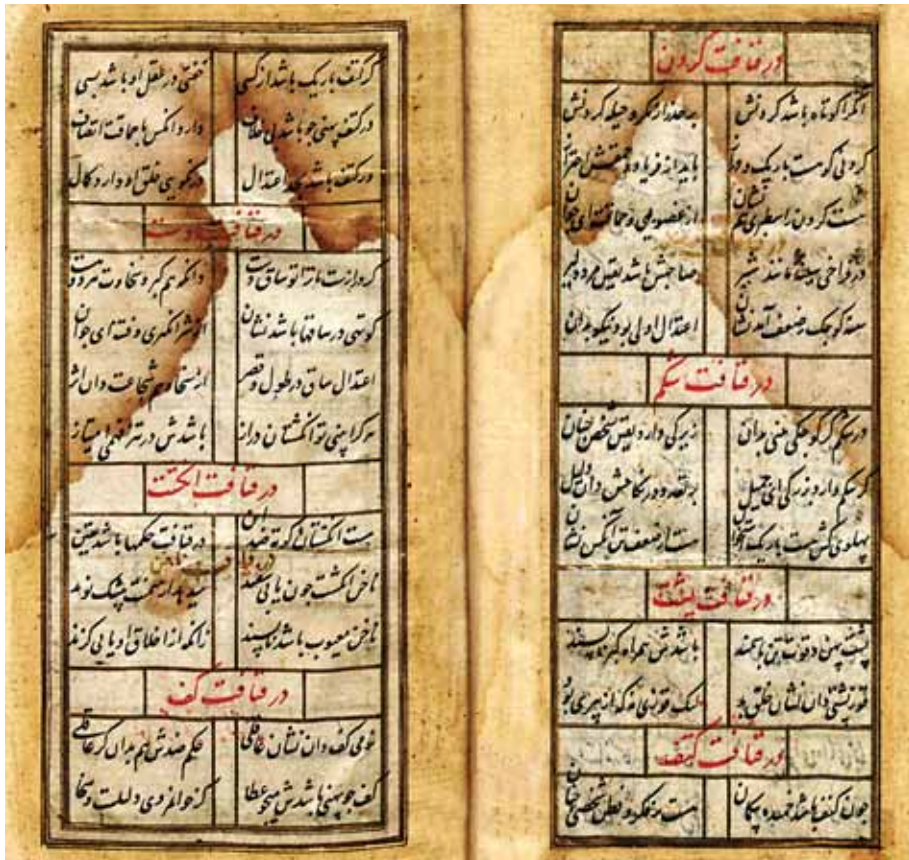 در قیافت گردن
آنکرا کوتاه باشد گردنش بر حذر از مکر و حیله کردنش
گردنی کوهست باریک و دراز باید از فریاد و احتراز
هست گردن را سطبری هم نشان از غضوبی و حماقت ای جوان
در فراخی سینهٔ مانند شیر صاحبش باشد یقین مرد دلیر
سینه کوچک ز ضعف آمد نشان اعتدال اولی بود نیکو بدان
در قیافت شکم
در شکم گر کوچکی بینی بدان زیرکی دارد یقین شخص نشان
گر شکم دارد بزرگی ای جمیل بر تعدد در نکاحش دان دلیل
پهلوی کش هست باریک استخوان هست از ضعف تن آنکس نشان
در قیافت پشت
پشت پهن و قوت تن باشدش همراه کبر ناپسند
قوز پشتی دان نشان خلق بد لیک قوزی نه که از پیری بود
در قیافت کتف
چون کتف باشد خمیده هست شخصی
گر کتف باریک باشد از کسی خفتی در عقل او باشد بسی
در کتف پهنی چو باشد بی خلاف دارد آنکس با حماقت
در کتف باشد اعتدال در نکویی خلق او دارد کمال
در قیافت دست
ساق دست دانکه هم کبر و سخاوت هر دو هست
کوتهی در ساقها باشد نشان از شر انگیزی و فتنه ای جوان
اعتدال ساق در طول و قصر از سخا و هم شجاعت دان اثر
هر کرا بینی تو انگشتان دراز باشدش در تیز فهمی امتیاز
در قیافت انگشت
هست انگشتان کوته ضد این در قیافت حکمها باشد متین
ناخن انگشت چون یابی سفید
ناخن معیوب باشد ناپسند زانکه از اخلاق او یابی گزند
در قیافت کف
نرمی کف دان نشان عاقلی حکم ضدش هم بدان گر عاقلی
کف چو پهنی باشدش میجو عطا کز جوانمردی دلیلست و سخا